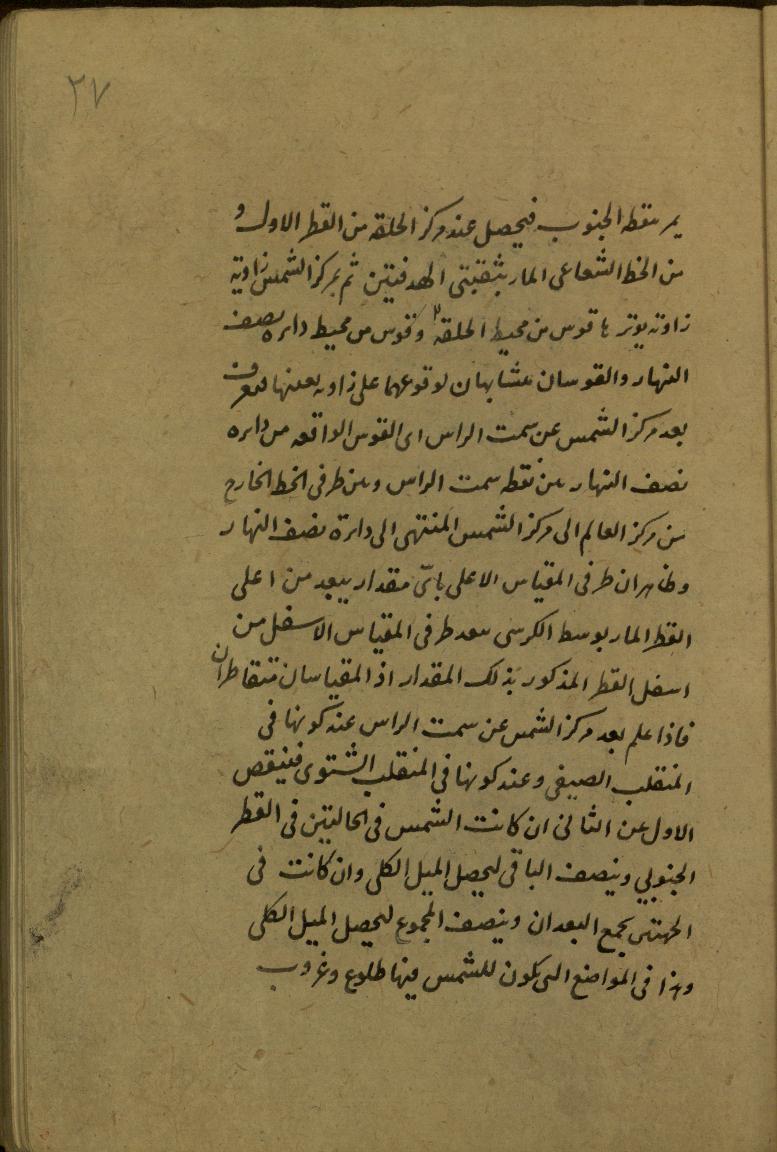 ٢٧
يمر بنقطه الجنوب فيحصل عند مركز الحلقه من القطر الاول و
من الخط الشعاعى المار بثقبتى الهدفتين ثم بمركز الشمس زاوية
زاوته يوتر ها قوس من محيط الحلقه وقوس من محيط دايره نصف
النهار والقوسان متشابهان لوقوعهما على زاويه بعينها فيعرف
بعد مركز الشمس عن سمت الراس اى القوس الواقعه من دايره
نصف النهار بين نقطه سمت الراس وبين طرفى الخط الخارج
من مركز العالم الى مركز الشمس المنتهى الى دايرة نصف النهار
وظاهر ان طرفى المقياس الاعلى باىّ مقدار يبعد من اعلى
القطر المار بوسط الكرسى يبعد طرفى المقياس الاسفل من
اسفل القطر المذكور بذلك المقدار اذ المقياسان متقاطران
فاذا علم بعد مركز الشمس عن سمت الراس عند كونها فى
المنقلب الصيفى وعند كونها فى المنقلب الشتوى فينقص
الاول عن الثانى ان كانت الشمس فى الحالتين فى القطر
الجنوبي وينصف الباقى ليحصل الميل الكلى وان كانت فى
الجهتين يجمع البعدان وينصف المجموع ليحصل الميل الكلى
وهذا فى المواضع التى يكون للشمس فيها طلوع وغروب